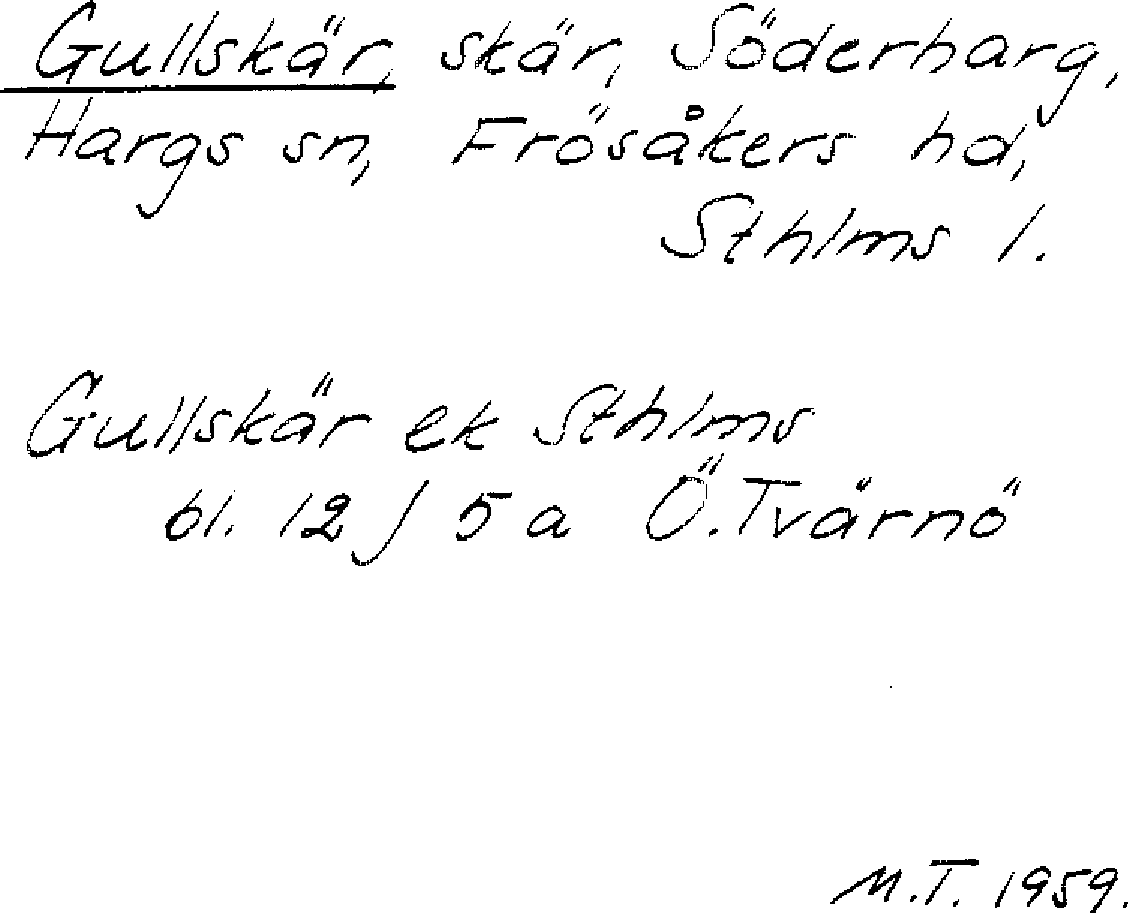 Gullskär, skär, Söderharg,
Hargs sn, Frösåkers hd,
Sthlms l.
Gullskär ek Sthlms
bl. 12 J 5 a Ö. Tvärnö
M.T. 1959.